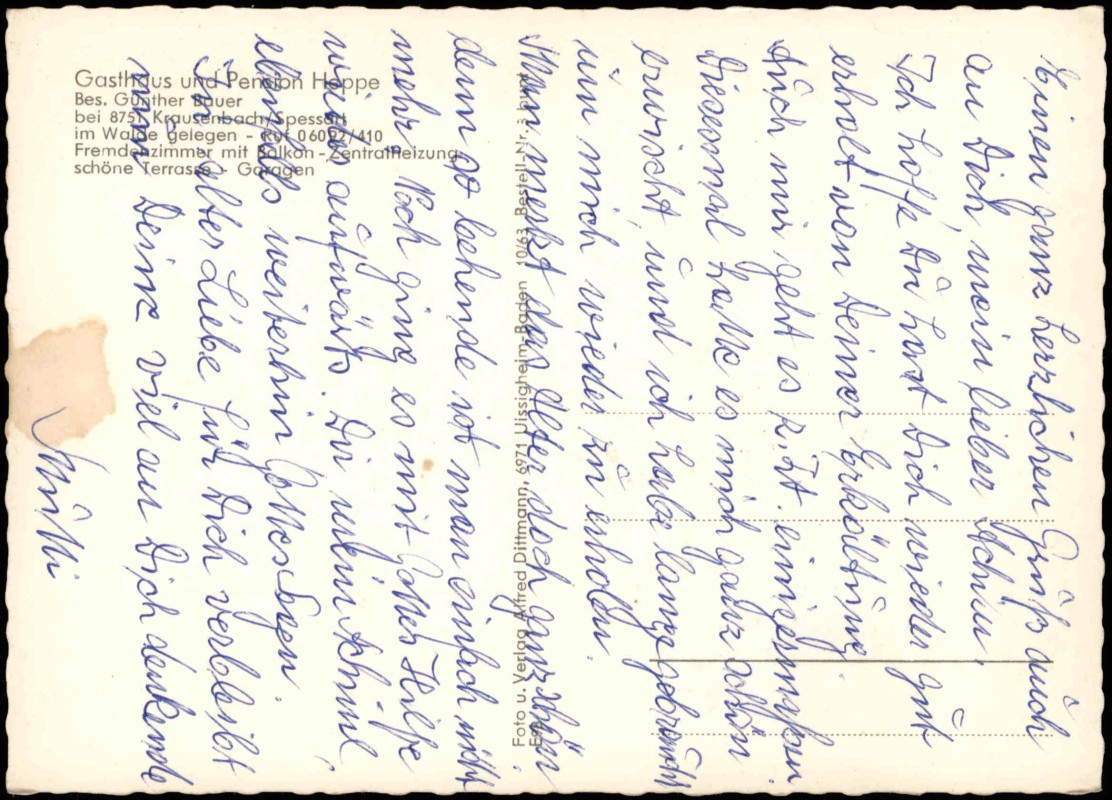 Gasthaus und Pension Hoppe
Bes. Günther Bauer
bei 8751 Krausenbach/Spessart
im Walde gelegen - Ruf 06092/410
Fremdenzimmer mit Balkon - Zentralheizung
schöne Terrasse - Garagen
Foto u. Verlag Alfred Dittmann, 6971 Uissigheim-Baden 10/63 Bestell-Nr. 3 bunt
Einen ganz herzlichen Gruß auch
an Dich, mein lieber Achim,
Ich hoffe Du hast Dich wieder gut
erholt von Deiner Erkältung
Auch mir geht es z.Zt. einigermaßen.
Diesesmal hatte es mich ganz schön
erwischt, und ich habe lange gebraucht
um mich wieder zu erholen.
Man merkt das Alter doch ganz schön
denn so behende ist man einfach nicht
mehr. Noch ging es mit Gottes Hilfe
wieder aufwärts. Dir, mein Achim,
ebenfalls weiterhin Gottes Segen.
In alter Liebe für Dich verbleibt
nun Deine viel an Dich denkende
Mutti